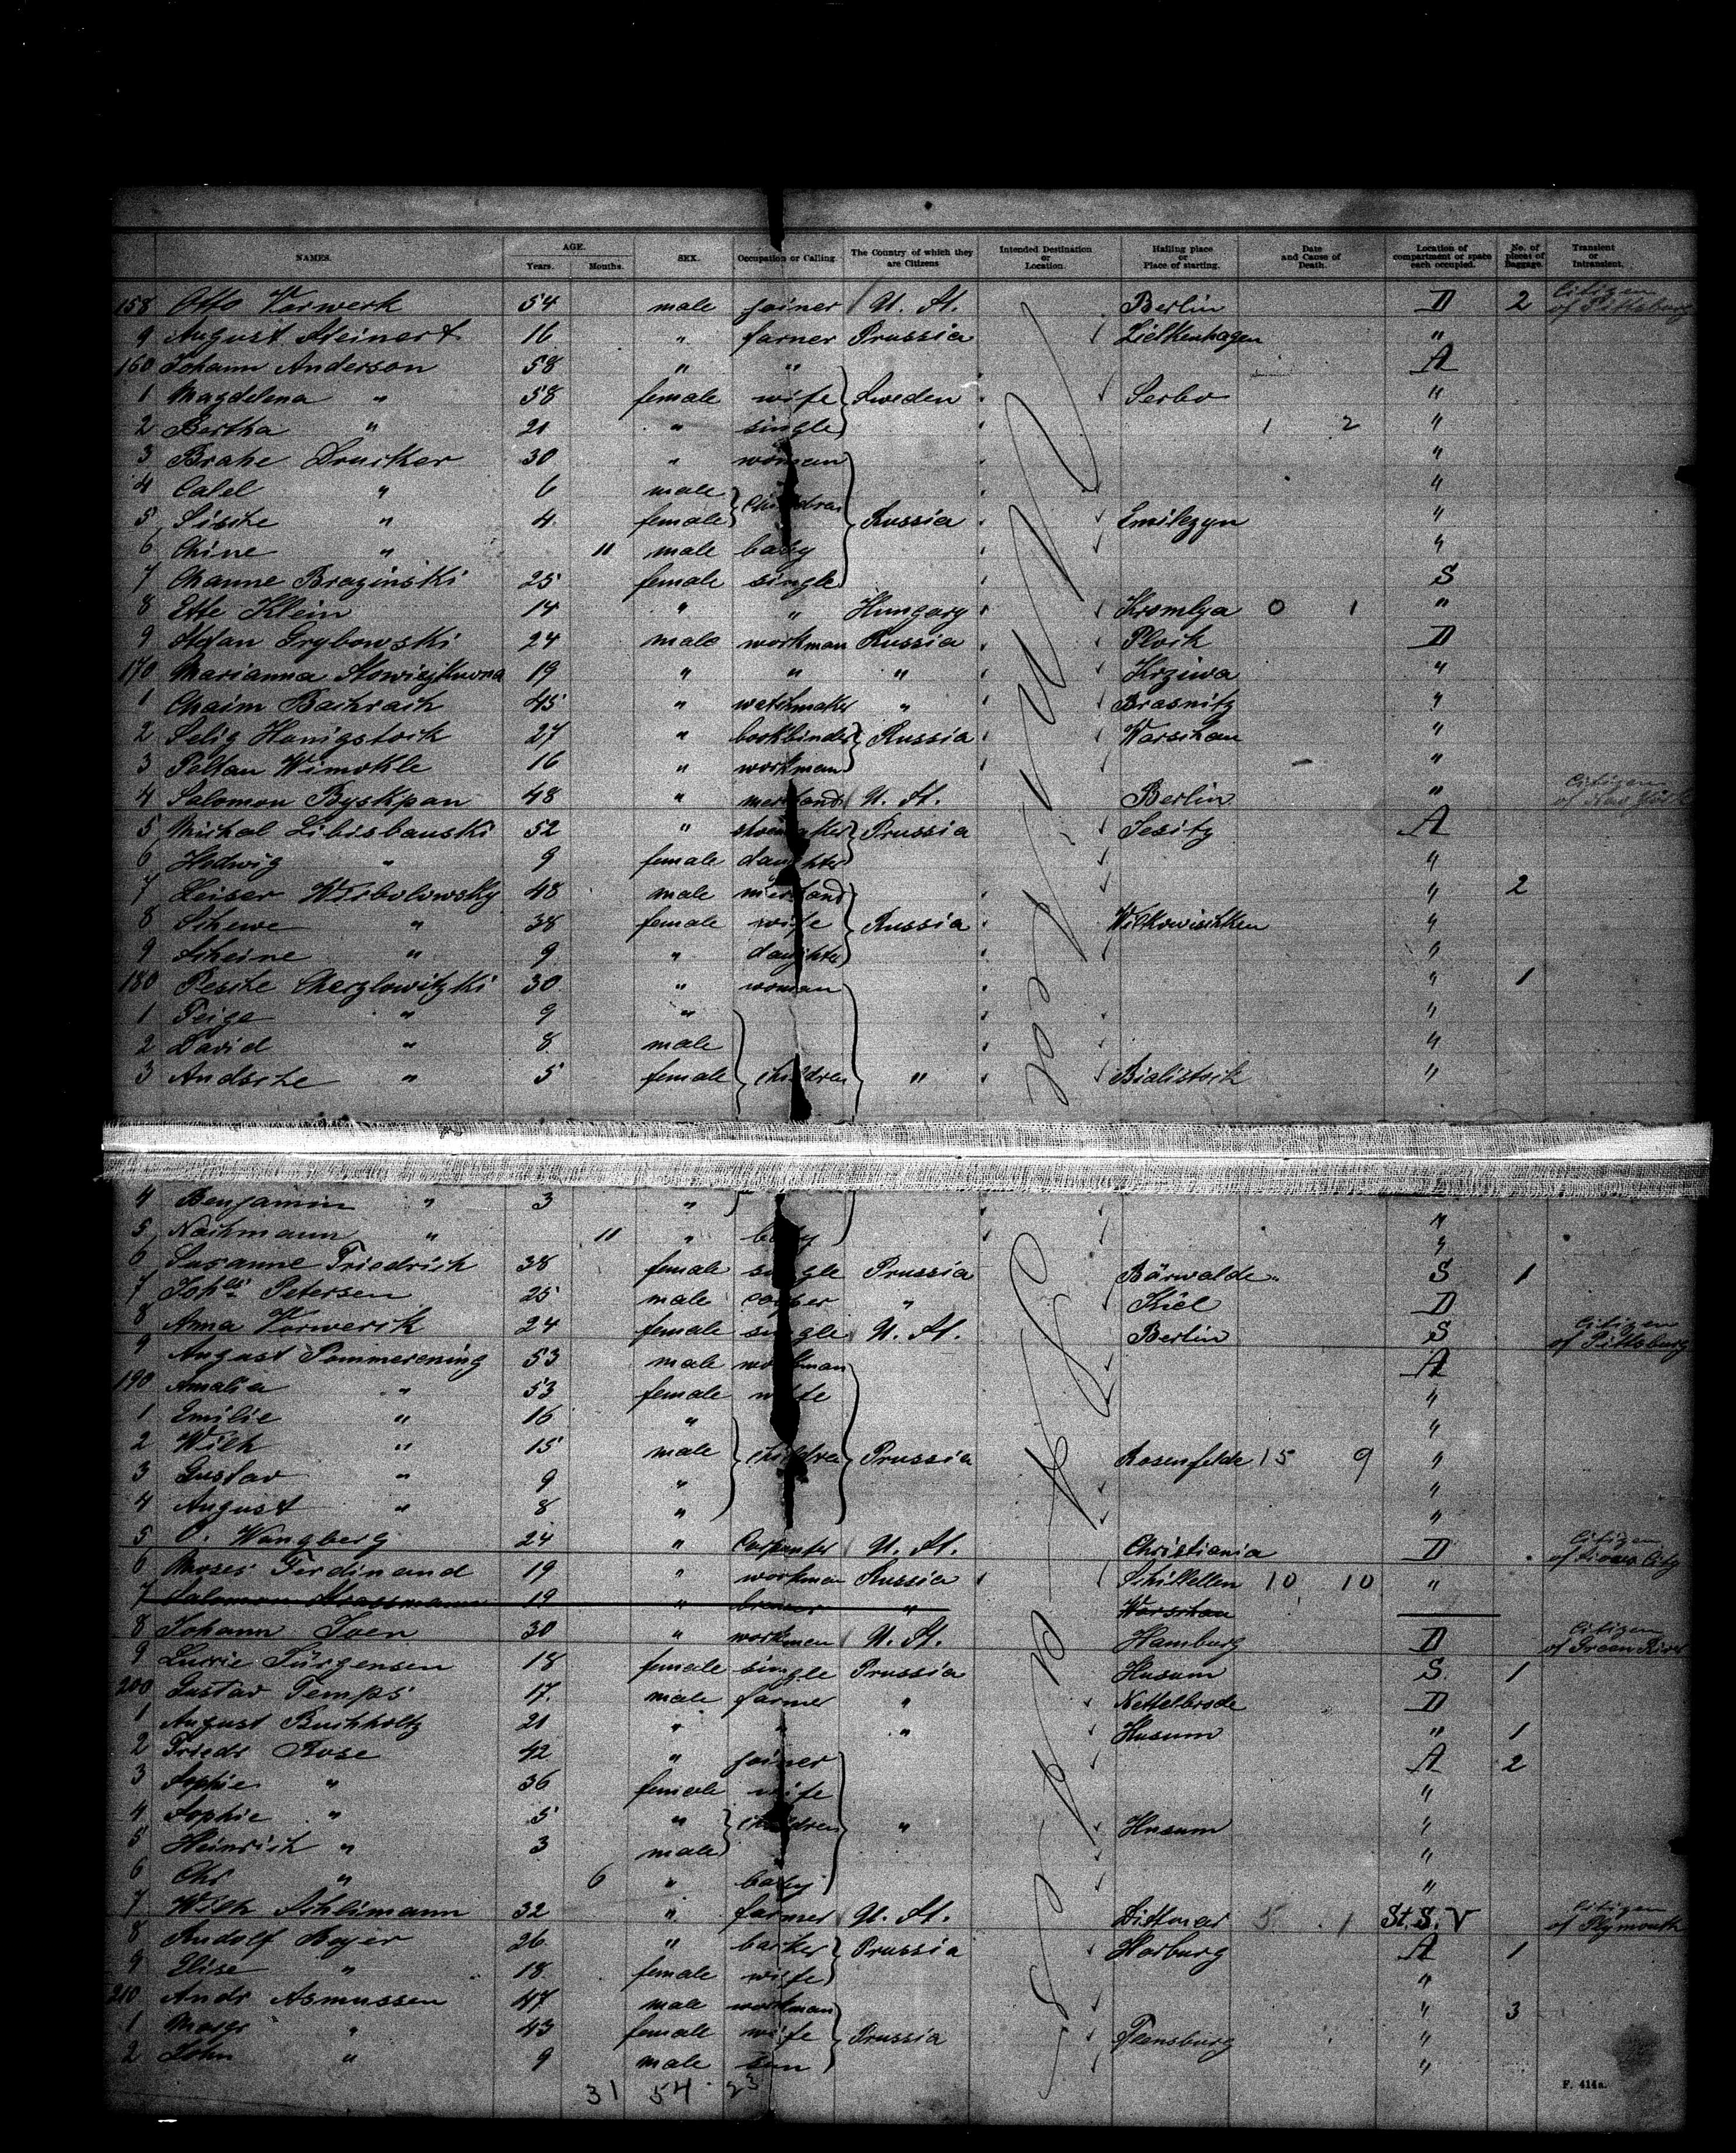 NAMES. AGE. Years. Months. SEX. Occupation or Calling. The Country of which they are Citizens Intended Destination or Location. Hailing place or Place of starting. Date and Cause of Death. Location of compartment or space each occupied. No. of pieces of Baggage. Transient or Intransient.
158 Otto Vorwerk 54 male joiner U. St. Berlin D 2 Citizen of Pittsburg
9 August Steinert 16 " farner Prussia Zielkenhagen "
160 Johann Anderson 58 " " A
1 Magdelena " 58 female wife Sweden Serbo "
2 Bertha " 21 " single 1 2 "
3 Brahe Drucker 30 " woman "
4 Calel " 6 male children "
5 Sische " 4 female Russia Emilezyn "
6 Chine " 11 male baby "
7 Channe Braginski 25 female single S
8 Ette Klein 14 " " Hungary Kromlya 0 1 "
9 Stefan Grybowski 24 male workman Russia Plock D
170 Marianna 19 " " " Krziwa "
1 Chaim Bachrach 45 " watchmaker " Brasnitz "
2 Selig Honigstock 27 " bookbinder Russia Warschau "
3 Paltan Wimokle 16 " workman "
4 Salomon Byskpan 48 " U. St. Berlin " Citizen of New York
5 Michal Libisbauski 52 " shoemaker Prussia Jesitz A
6 Hedwig " 9 female daughter "
7 Leiser Wibolowsky 48 male " 2
8 Schewe " 38 female wife Russia Wilkowischken "
9 Scheine " 9 " daughter "
180 Pesche Cherzlowitzki 30 " woman " 1
1 Feige " 9 " "
2 David " 8 male "
3 Andsche " 5 female children " Bialistock "
4 Benjamin " 3 " "
5 Nachmann " 11 " baby "
6 Susanne Friedrich 38 female single Prussia Bärwalde S 1
7 Johs Petersen 25 male cooper " Kiel D
8 Anna Vorwerk 24 female single U. St. Berlin S Citizen of Pittsburg
9 August Pommerening 53 male workman A
190 Amalia " 53 female wife "
1 Emilie " 16 " "
2 Wilh " 15 male children Prussia Rosenfelde 15 9 "
3 Gustav " 9 " "
4 August " 8 " "
5 O. Wangberg 24 " Carpenter U. St. Christiania D Citizen of Iowa City
6 Moses Ferdinand 19 " workman Russia Schillellen 10 10 "
7 Salomon Strassmann 19 " " Warschau
8 Johann Joen 30 " workman U. St. Hamburg D Citizen of Green River
9 Lucie Jürgensen 18 female single Prussia Husum S. 1
200 Gustav Temps 17. male farmer " Nettelbrode D
1 August Buchholtz 21 " " " Husum " 1
2 Friedr Rose 42 " joiner A 2
3 Sophie " 36 female wife "
4 Sophie " 5 " children " Husum "
5 Heinrich " 3 male "
6 Chr " 6 " baby "
7 Wilh Schlimann 32 " farmer U. St. Dittmar 5 1 St. S. V Citizen of Plymouth
8 Rudolf Bojer 26 " Prussia Harburg A 1
9 Elise " 18 female wife "
210 Andr Asmussen 47 male workman " 3
1 Margr " 43 female wife Prussia Flensburg "
2 John " 9 male son "
31 54 23
F. 414a.